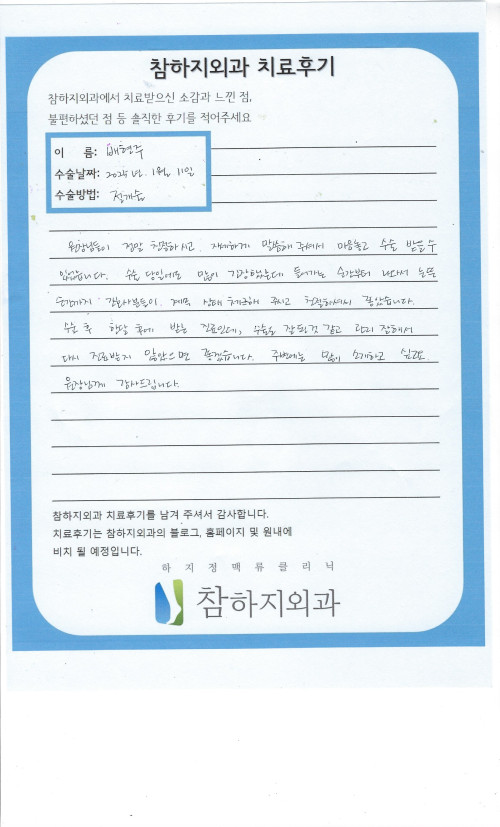 참하지외과 치료후기
참하지외과에서 치료받으신 소감과 느낀 점,
불편하셨던 점 등 솔직한 후기를 적어주세요
이 름: 배현주
수술날짜: 2025년 1월 11일
수술방법: 절개술
원장님들이 정말 친절하시고 자세하게 말씀해 주셔서 마음놓고 수술 받을 수
있었습니다. 수술 당일에도 많이 긴장했는데 들어가는 순간부터 나와서 눈뜰
때까지 간호사분들이 계속 상태 체크해 주시고 친절하셔서 좋았습니다.
수술 후 한달 후에 받는 진료인데, 수술도 잘 된것 같고 관리 잘해서
다시 진료받지 않았으면 좋겠습니다. 주변에는 많이 소개하고 싶네요.
원장님께 감사드립니다.
참하지외과 치료후기를 남겨 주셔서 감사합니다.
치료후기는 참하지외과의 블로그, 홈페이지 및 원내에
비치 될 예정입니다.
하지정맥류클리닉
참하지외과